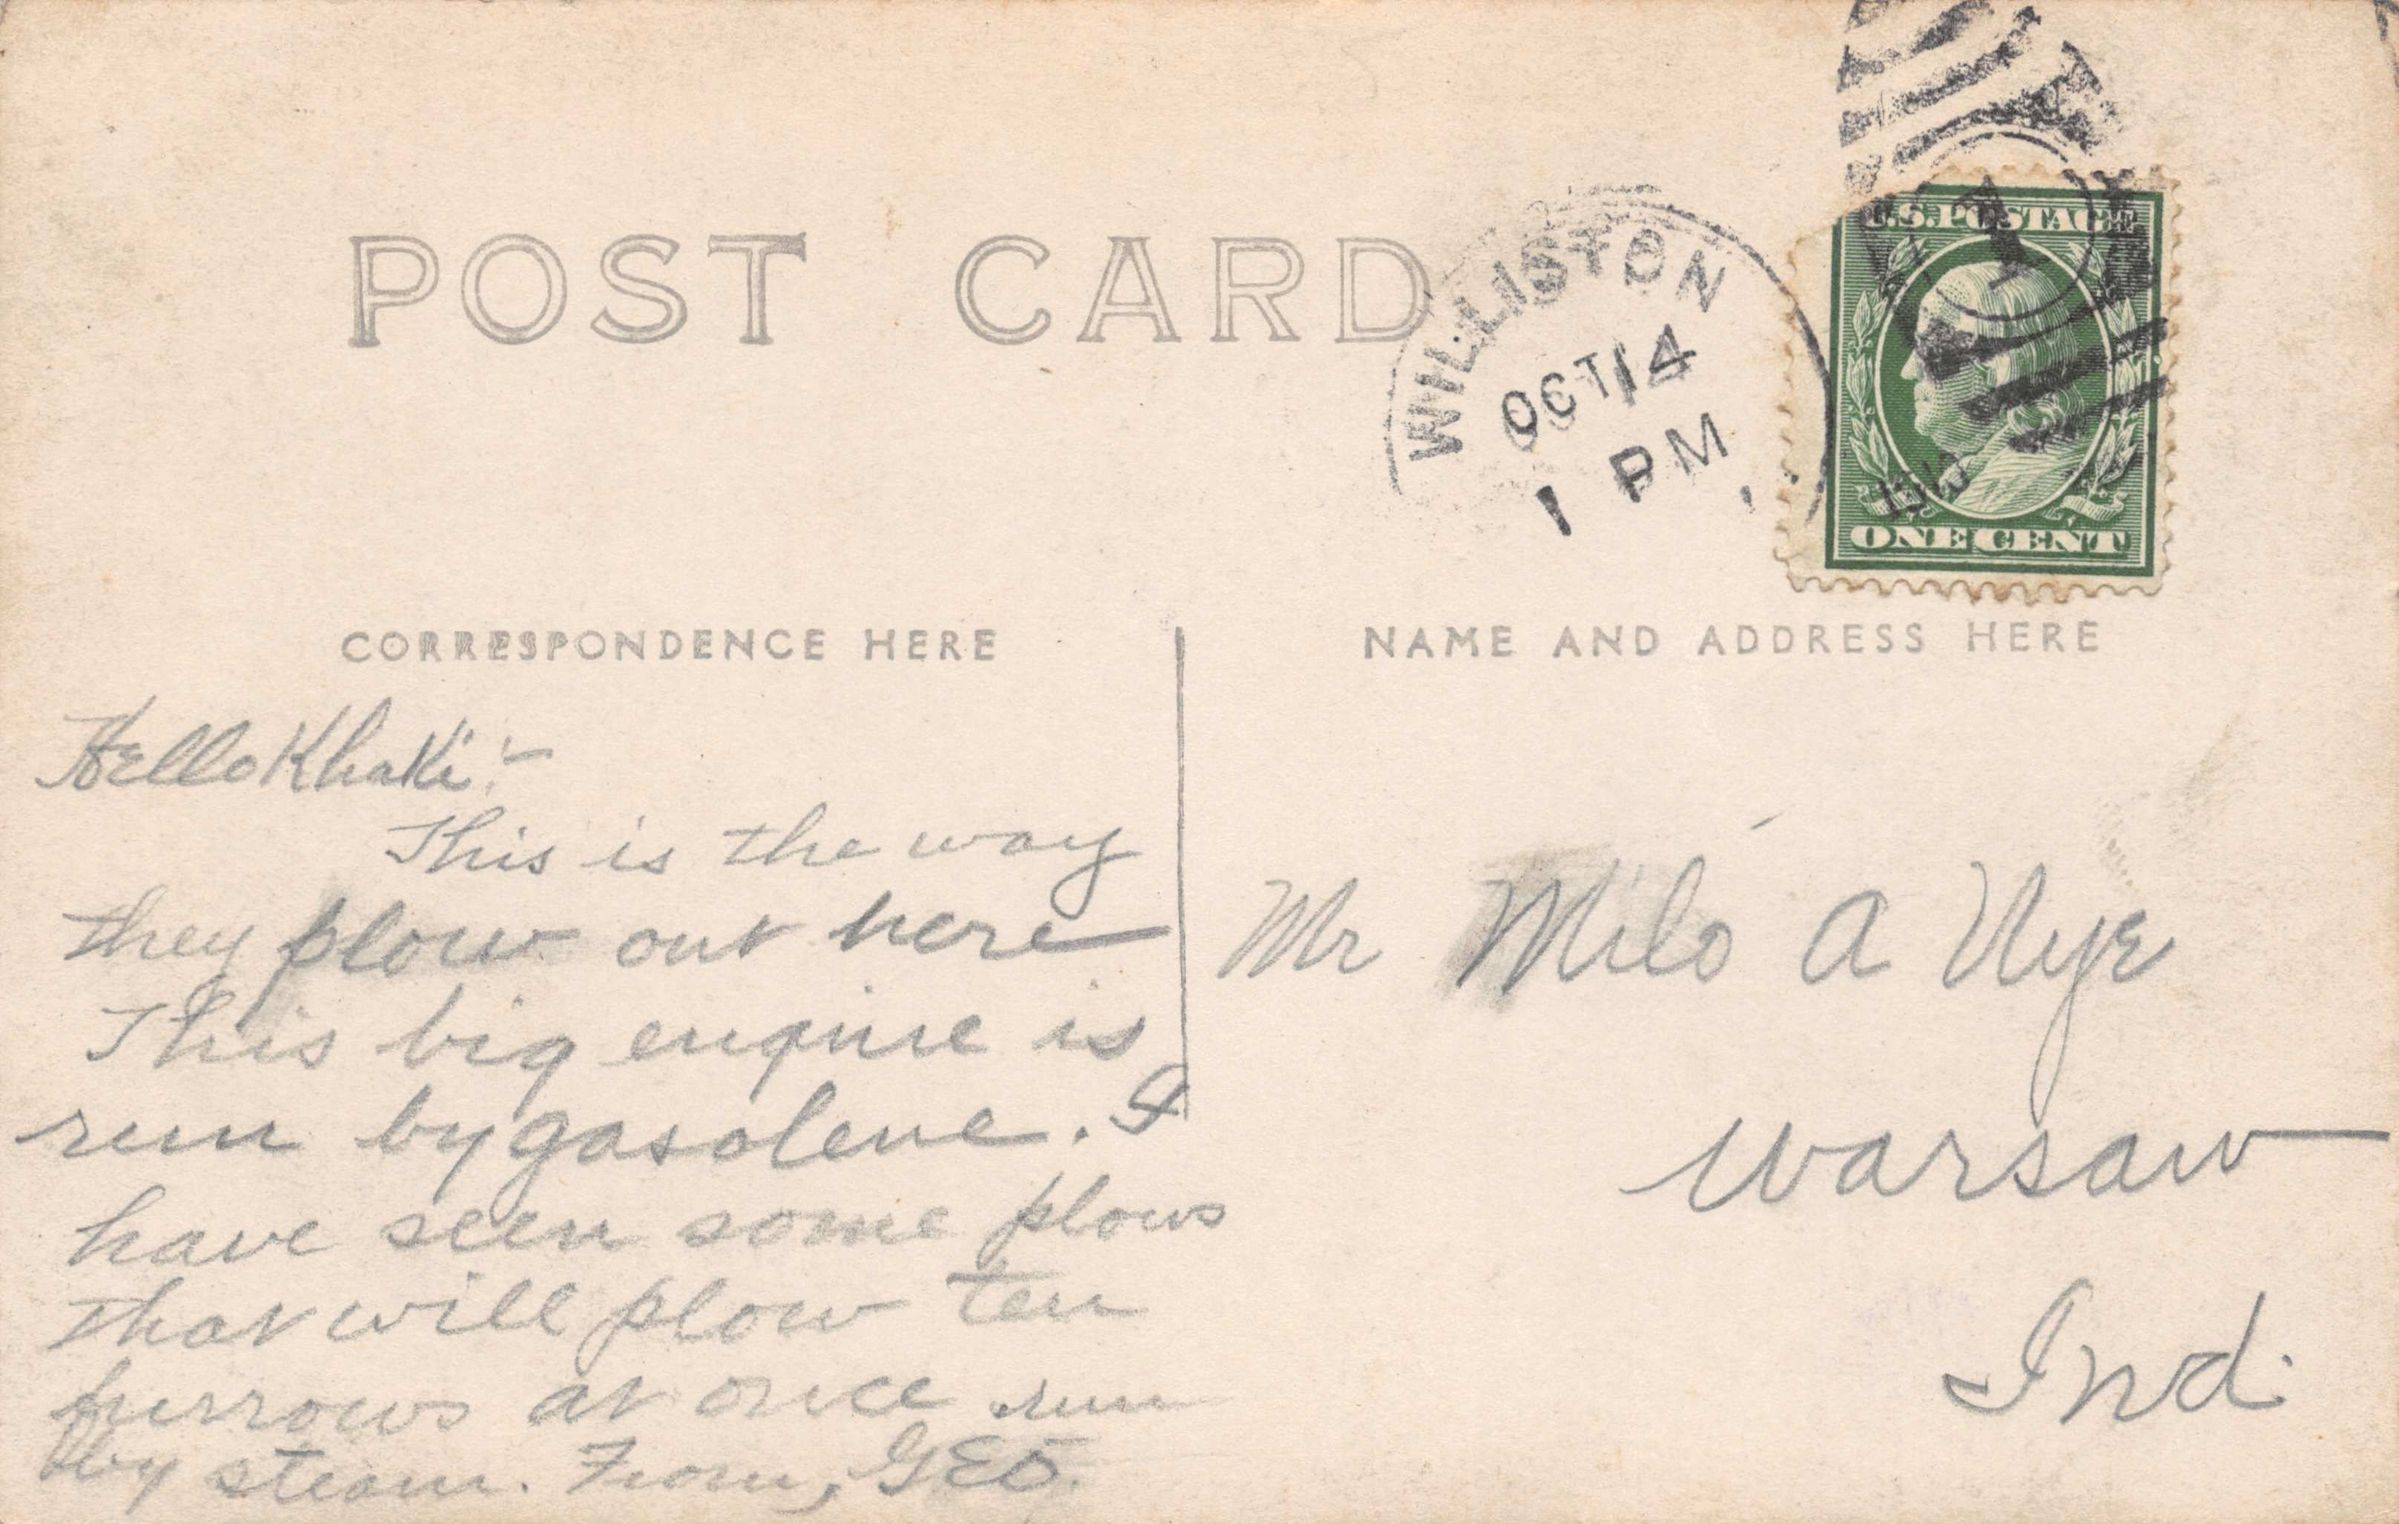 POST CARD
WILLISTON
OCT 14
1 PM
U.S. POSTAGE
ONE CENT
CORRESPONDENCE HERE
NAME AND ADDRESS HERE
Hello Khaki:-
This is the way
they plow out here
This big engine is
run by gasolene. I
have seen some plows
that will plow ten
furrows at once run
by steam. From, GEO.
Mr Milo A Nye
Warsaw
Ind.